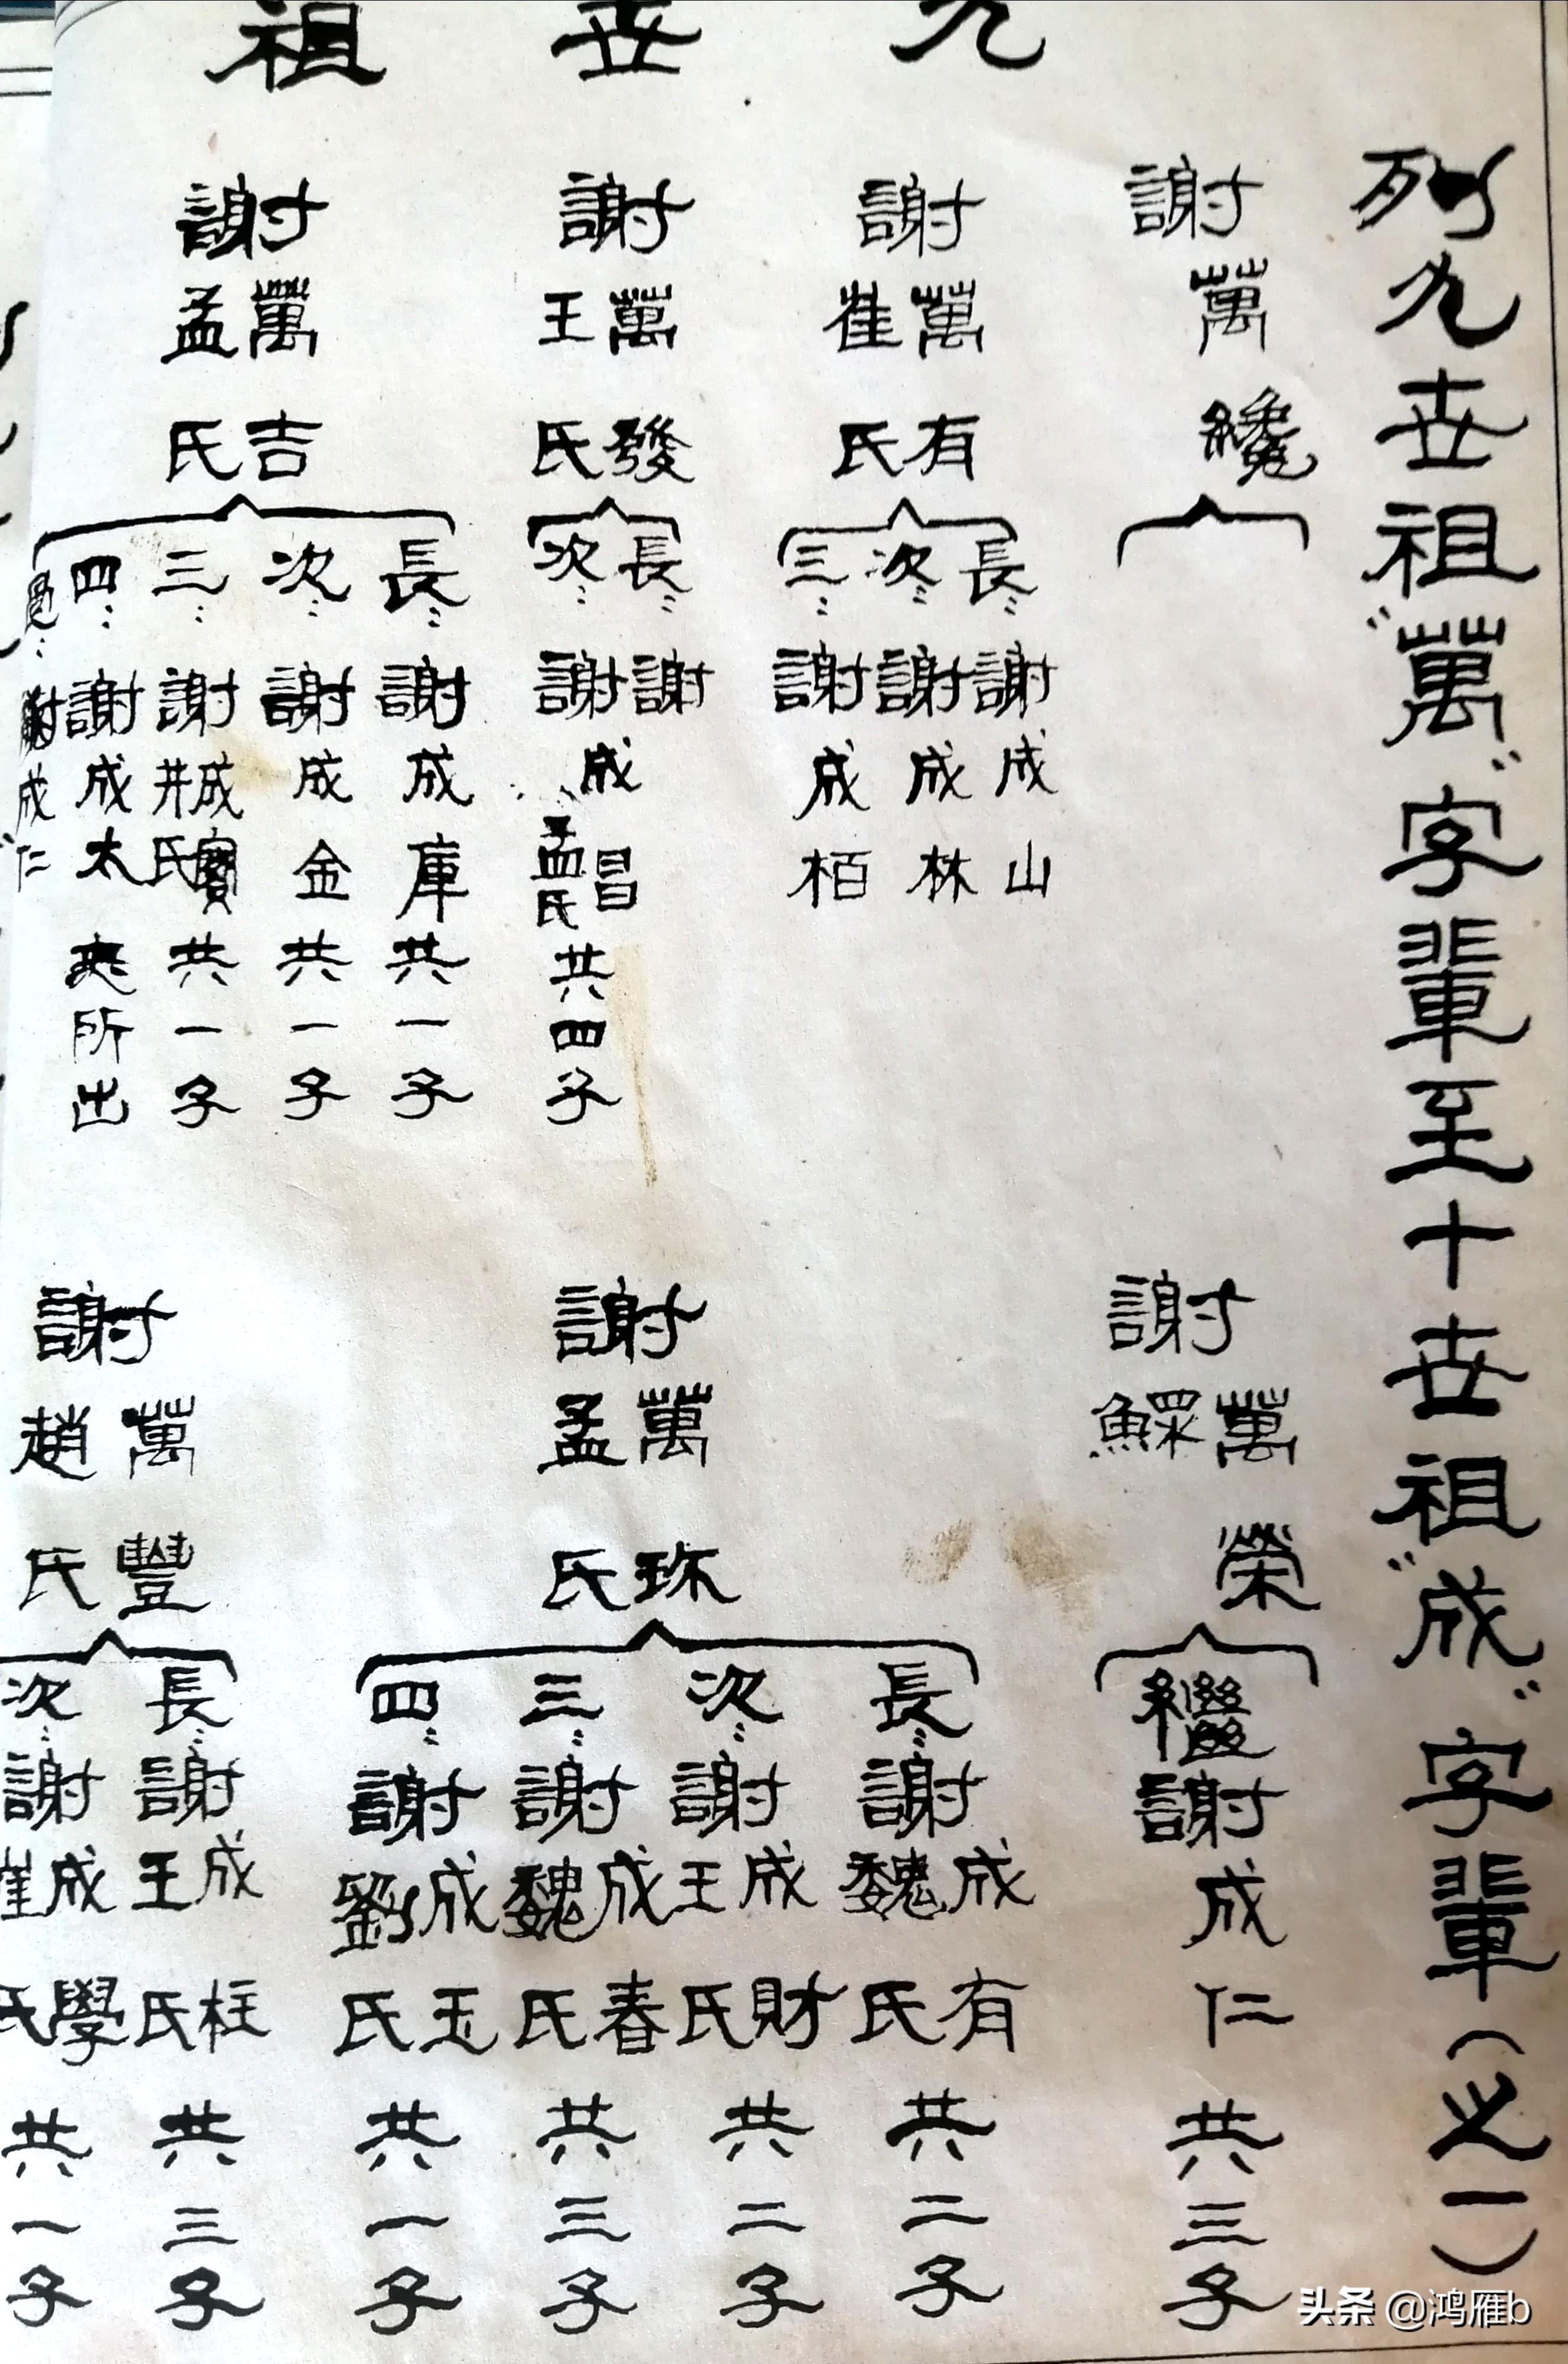 九世祖
列九世祖"萬"字輩至十世祖"成"字輩(之一)
謝萬
謝萬有
崔氏
長:謝成山
次:謝成林
三:謝成栢
謝萬發
王氏
長:謝成昌
孟氏
共四子
次:謝
謝萬吉
孟氏
長:謝成庫共一子
次:謝成金共一子
三:謝成寶
井氏
共一子
四:謝成太
所出
謝成仁
謝萬榮
鰥
繼謝成仁共三子
謝萬珎
孟氏
長:謝成有
魏氏
共二子
次:謝成財
王氏
共二子
三:謝成春
魏氏
共三子
四:謝成玉
劉氏
共一子
謝萬豐
趙氏
長:謝成柱
王氏
共三子
次:謝成學
崔氏
共一子
头条 @鸿雁b